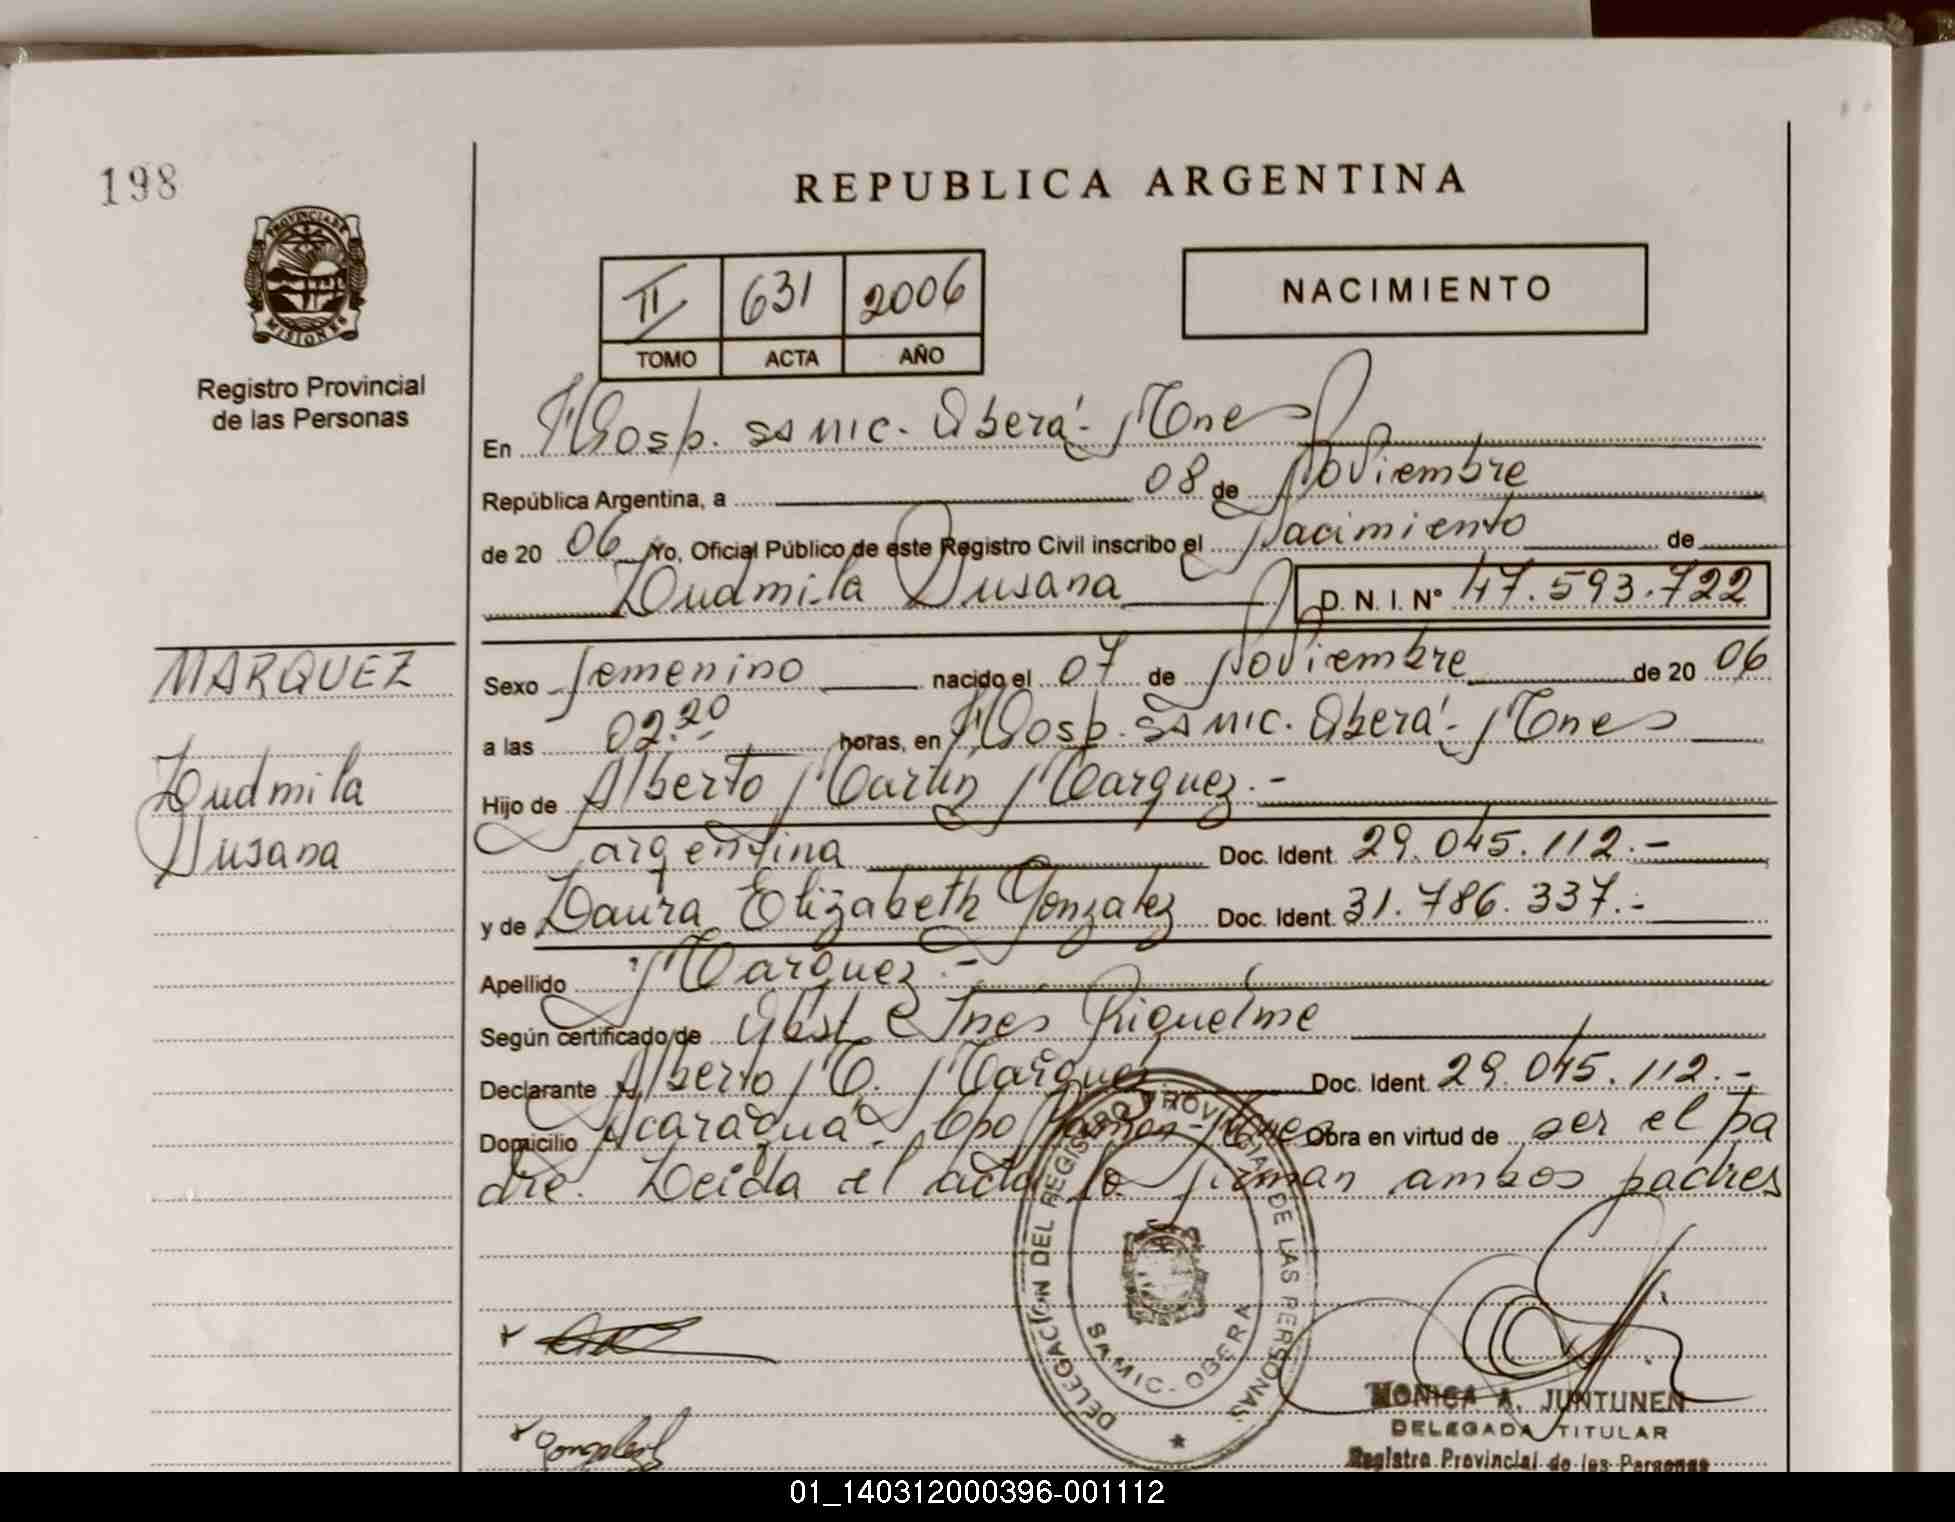 198
PROVINCIA DE
MISIONES
Registro Provincial
de las Personas
REPUBLICA ARGENTINA
II 631 2006
TOMO ACTA AÑO
NACIMIENTO
En Hosp. SAMIC. Oberá - Mnes
República Argentina, a 08 de Noviembre
de 20 06 Yo, Oficial Público de este Registro Civil inscribo el Nacimiento de
Ludmila Susana D. N. I. Nº 47.593.722
MARQUEZ
Ludmila
Susana
Sexo femenino nacido el 07 de Noviembre de 20 06
a las 02.20 horas, en Hosp. SAMIC. Oberá - Mnes
Hijo de Alberto Martin Marquez.-
argentina Doc. Ident. 29.045.112.-
y de Laura Elizabeth Gonzalez Doc. Ident. 31.786.337.-
Apellido Marquez.-
Según certificado de Obst. Inés Riquelme
Declarante Alberto M. Marquez Doc. Ident. 29.045.112.-
Domicilio Acaraguá. Cpo Mnes Obra en virtud de ser el pa
dre. Leida el acta la firman ambos padres
DELEGACION DEL REGISTRO PROVINCIAL DE LAS PERSONAS
SAMIC - OBERA
Gonzalez
MONICA A. JUNTUNEN
DELEGADA TITULAR
Registro Provincial de las Personas
01_140312000396-001112